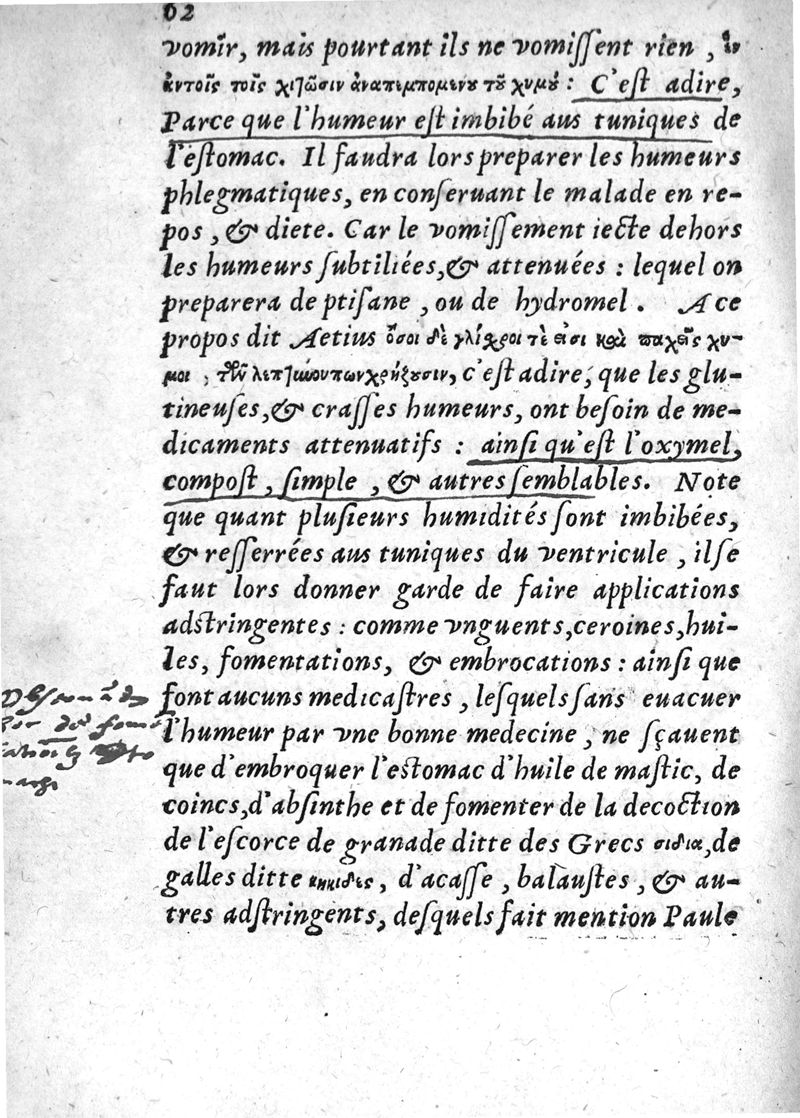 62
vomir, mais pourtant ils ne vomiſſent rien, ἐν
ἀυτοῖς τοῖς χιτῶσιν ἀναπεμπομενου τοῦ χυμοῦ : C'eſt adire,
Parce que l'humeur eſt imbibé aus tuniques de
l'eſtomac. Il faudra lors preparer les humeurs
phlegmatiques, en conſeruant le malade en re-
pos, & diete. Car le vomiſſement iecte dehors
les humeurs ſubtiliées, & attenuées : lequel on
preparera de ptiſane, ou de hydromel. A ce
propos dit Aetius ὅσοι δὲ γλίχροι τὲ εἰσι καὶ παχεῖς χυ-
μοι, c'eſt adire, que les glu-
tineuſes, & craſſes humeurs, ont beſoin de me-
dicaments attenuatifs : ainſi qu'eſt l'oxymel,
compoſt, ſimple, & autres ſemblables. Note
que quant pluſieurs humidités ſont imbibées,
& reſſerrées aus tuniques du ventricule, il ſe
faut lors donner garde de faire applications
adſtringentes : comme vnguents, ceroines, hui-
les, fomentations, & embrocations : ainſi que
font aucuns medicaſtres, leſquels ſans euacuer
l'humeur par vne bonne medecine, ne ſçauent
que d'embroquer l'eſtomac d'huile de maſtic, de
coincs, d'abſinthe et de fomenter de la decoction
de l'eſcorce de granade ditte des Grecs σιδια, de
galles ditte κηκιδες, d'acaſſe, balauſtes, & au-
tres adſtringents, deſquels fait mention Paule